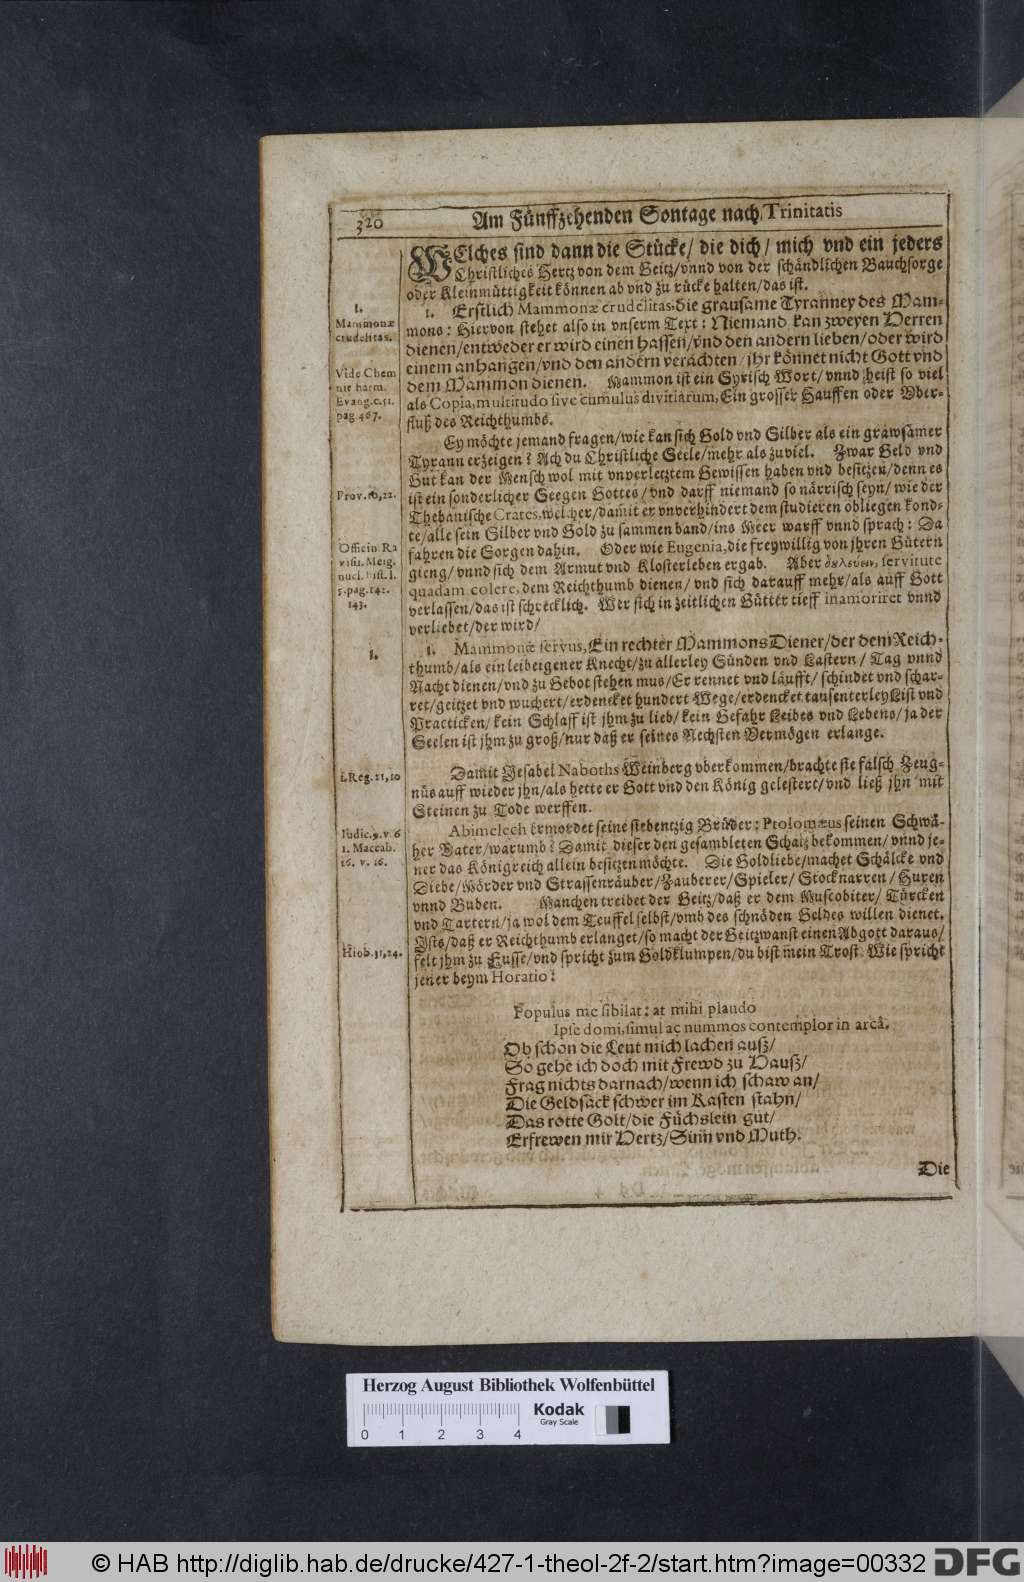 320
Am Fünffzehenden Sontage nach Trinitatis
WElches sind dann die Stücke/ die dich/ mich vnd ein jeders
Christliches Hertz von dem Geitz/vnnd von der schändlichen Bauchsorge
oder Kleinmüttigkeit können ab vnd zu rücke halten/das ist.
1.
Mammonæ
crudelitas.
1. Erstlich Mammonæ crudelitas, die grausame Tyranney des Mam-
mons: Hiervon stehet also in vnserm Text: Niemand kan zweyen Herren
dienen/entweder er wird einen hassen/vnd den andern lieben/oder wird
einem anhangen/vnd den andern verachten/jhr könnet nicht Gott vnd
dem Mammon dienen. Mammon ist ein Syrisch Wort/ vnnd heist so viel
als Copia, multitudo sive cumulus divitiarum, Ein grosser Hauffen oder Vber-
fluß des Reichthumbs.
Vide Chem
nit harm.
Evang.c.51.
pag 467.
Ey möchte jemand fragen/wie kan sich Gold vnd Silber als ein grawsamer
Tyrann erzeigen? Ach du Christliche Seele/mehr als zuviel. Zwar Geld vnd
Gut kan der Mensch wol mit vnverletztem Gewissen haben vnd besitzen/denn es
ist ein sonderlicher Seegen Gottes/vnd darff niemand so närrisch seyn/ wie der
Thebanische Crates, welcher/damit er vnverhindert dem studieren obliegen kond-
te/alle sein Silber vnd Gold zu sammen band/ins Meer warff vnnd sprach: Da
fahren die Sorgen dahin. Oder wie Eugenia, die freywillig von jhren Gütern
gieng/ vnnd sich dem Armut vnd Klosterleben ergab. Aber δουλεύειν, servitute
quadam colere, dem Reichthumb dienen/ vnd sich darauff mehr/als auff Gott
verlassen/das ist schrecklich. Wer sich in zeitlichen Gütter tieff inamoriret vnnd
verliebet/der wird/
Prov. 10, 22.
Officin. Ra
visii. Meig.
nucl. hist. l.
5. pag. 142.
143.
1.
1. Mammonæ servus, Ein rechter Mammons Diener/der dem Reich-
thumb/als ein leibeigener Knecht/zu allerley Sünden vnd Lastern/ Tag vnnd
Nacht dienen/vnd zu Gebot stehen mus/Er rennet vnd läufft/ schindet vnd schar-
ret/geitzet vnd wuchert/erdencket hundert Wege/erdencket tausenterley List vnd
Practicken/kein Schlaff ist jhm zu lieb/kein Gefahr Leibes vnd Lebens/ja der
Seelen ist jhm zu groß/nur daß er seines Nechsten Vermögen erlange.
1. Reg. 21, 10
Damit Jesabel Naboths Weinberg vberkommen/brachte sie falsch Zeug-
nüs auff wieder jhn/als hette er Gott vnd den König gelestert/vnd ließ jhn mit
Steinen zu Tode werffen.
Judic. 9. v. 6
1. Maccab.
16. v. 16.
Abimelech ermordet seine siebentzig Brüder: Ptolomæus seinen Schwä-
her Vater/warumb? Damit dieser den gesambleten Schatz bekommen/ vnnd je-
ner das Königreich allein besitzen möchte. Die Goldliebe/machet Schälcke vnd
Diebe/Mörder vnd Strassenräuber/Zauberer/Spieler/ Stocknarren/ Huren
vnnd Buben. Manchen treibet der Geitz/daß er dem Muscobiter/ Türcken
vnd Tartern/ja wol dem Teuffel selbst/vmb des schnöden Geldes willen dienet.
Ists/daß er Reichthumb erlanget/so macht der Geitzwanst einen Abgott daraus/
felt jhm zu Fusse/vnd spricht zum Goldklumpen/du bist mein Trost. Wie spricht
jener beym Horatio:
Hiob. 31, 24.
Populus me sibilat: at mihi plaudo
Ipse domi, simul ac nummos contemplor in arcâ.
Ob schon die Leut mich lachen auß/
So gehe ich doch mit Frewd zu Hauß/
Frag nichts darnach/wenn ich schaw an/
Die Geldsäck schwer im Kasten stahn/
Das rotte Golt/die Füchslein gut/
Erfrewen mir Hertz/Sinn vnd Muth.
Die
Herzog August Bibliothek Wolfenbüttel
Kodak
Gray Scale
0 1 2 3 4
© HAB http://diglib.hab.de/drucke/427-1-theol-2f-2/start.htm?image=00332
DFG